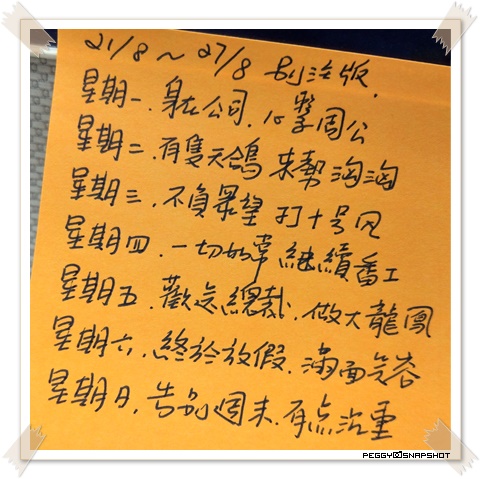 21/8 ~ 27/8 創治版.
星期一.身在公司.心繫周公
星期二.有隻天鴿 來幫淘淘
星期三.不負眾望 打十号风
星期四.一切如常 繼續番工
星期五.歡送總裁.做大龍鳳
星期六.終於放假.滿面笑容
星期日.告別週末.有点沉重
PEGGY SNAPSHOT